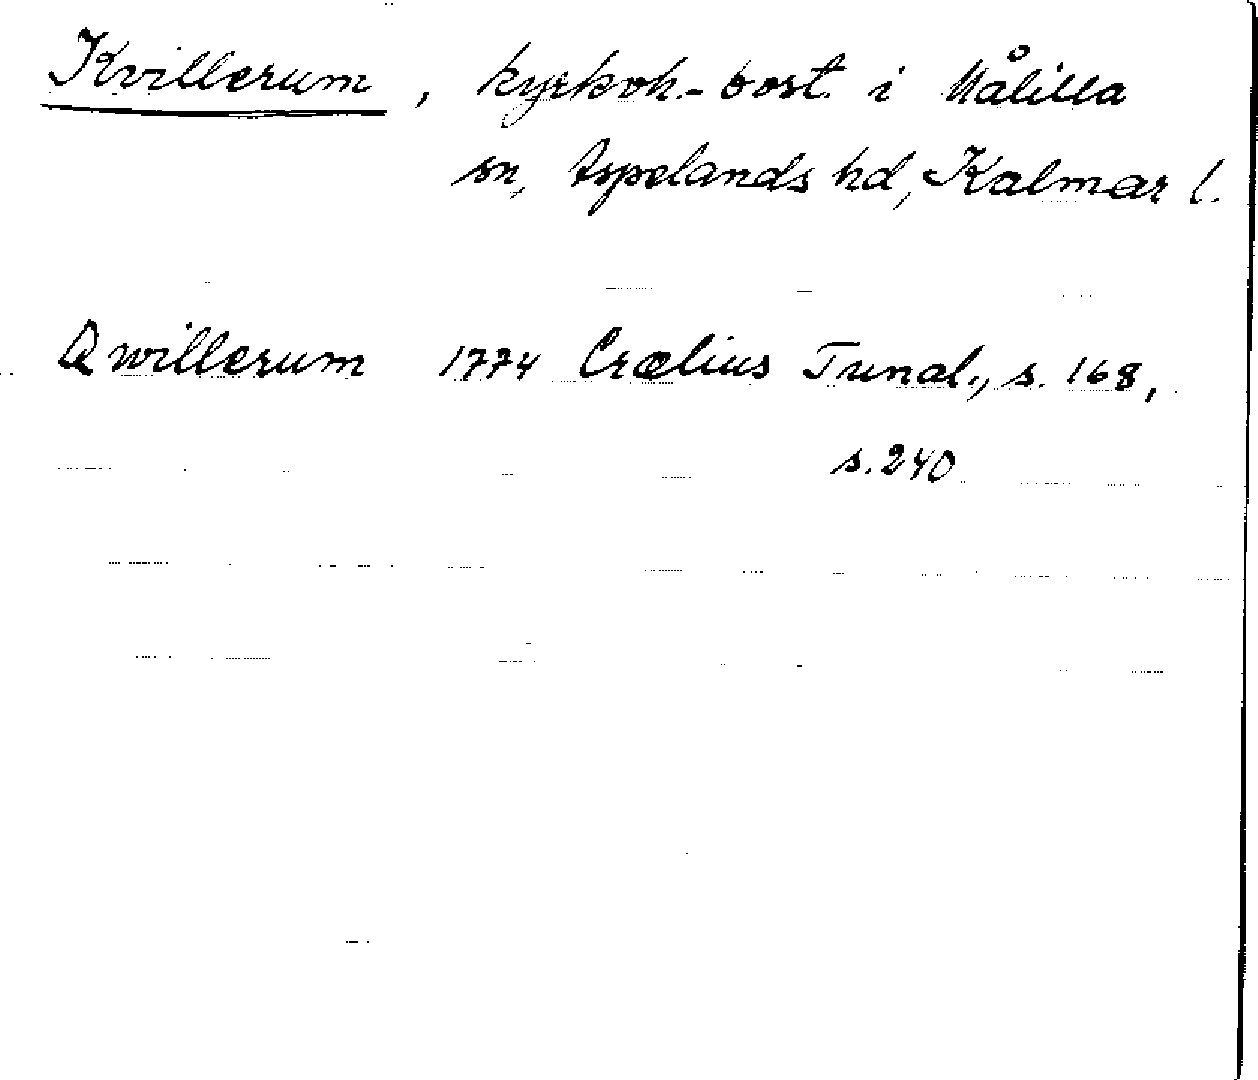 Kvillerum, kyrkoh.-bost. i Målilla
sn, Aspelands hd, Kalmar l.
Qwillerum 1774 Crælius Tunal., s. 168,
s. 240